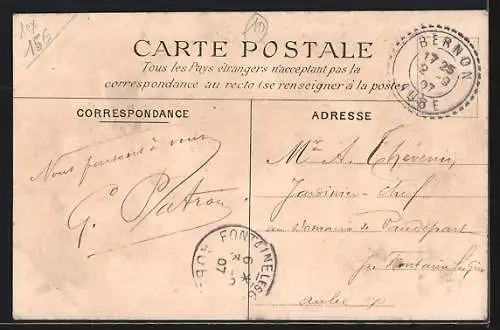 10x
15E
10
CARTE POSTALE
Tous les Pays étrangers n'acceptant pas la
correspondance au recto (se renseigner à la poste)
BERNON
17 25
2 -9
07
AUBE
CORRESPONDANCE
ADRESSE
Nous pensons à vous
G. Patron
Mr A. Thévenin
Jardinier-Chef
au Domaine de
près Fontaine les Grès
Aube
FONTAINE LES G
07
AUBE